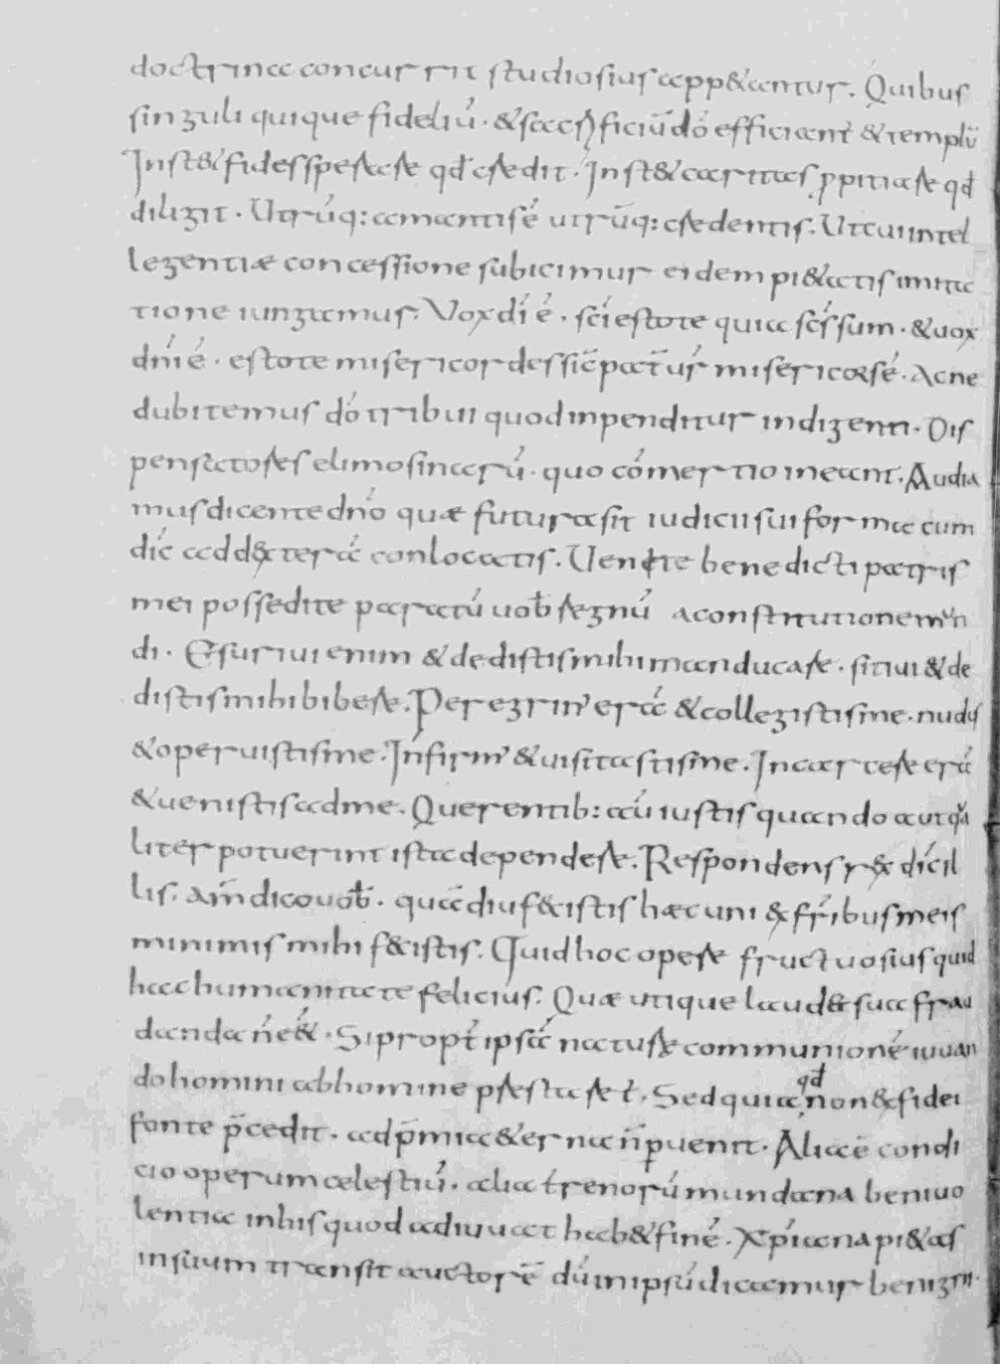 doctrina concurrit studiosius app&antur. Quibus
singuli quique fideliū. & sacrificiū dō efficiant̄ & templū
Inst& fides sperare qđ credit. Inst& caritas ꝓpitiare qđ
diligit. Utrūq: amantis ē utrūq: credentis. Ut cui intel
legentiæ concessione subicimur eidem pi&atis imita
tione iungamur. Vox dī ē. sc̄i estote quia sc̄s sum. & uox
dnī ē. estote misericordes sic̄ pat̄ ur̄ misericors ē. Ac ne
dubitemus dō tribui quod inpenditur indigenti. Dis
pensatores elimosinarū. quo cōmertio ineant. Audia
mus dicente dn̄o quæ futura sit iudicii sui forma cum
dic̄ ad dexterā conlocatis. Uenite benedicti patris
mei possedite paratū uob̄ regnū a constitutione mun
di. Esuriui enim & dedistis mihi manducare. sitiui & de
distis mihi bibere. Peregrin' erā & collegistis me. nudus
& operuistis me. Infirm' & uisitastis me. In carcere erā
& uenistis ad me. Querentib: aū iustis quando aut qua
liter potuerint ista dependere. Respondens rex dic̄ il
lis. am̄ dico uob̄. quādiu f&istis hæc uni ex fr̄ibus meis
minimis mihi f&istis. Quid hoc opere fructuosius quid
hac humanitate felicius. Quæ utique laude sua frau
danda n̄ e&. Si propt̄ ipsā naturæ communionē iuuan
do homini ab homine prestaret̄. Sed quia qđ non & fidei
fonte p̄cedit. ad p̄mia &erna n̄ ꝑuenit. Alia ē condi
cio operum celestiū. alia t̄renorū mundana beniuo
lentia in his quod adiuuat hab& finē. Xp̄iana pi&as
in suum transit auctorē dū in ipsū dicamur benigni.